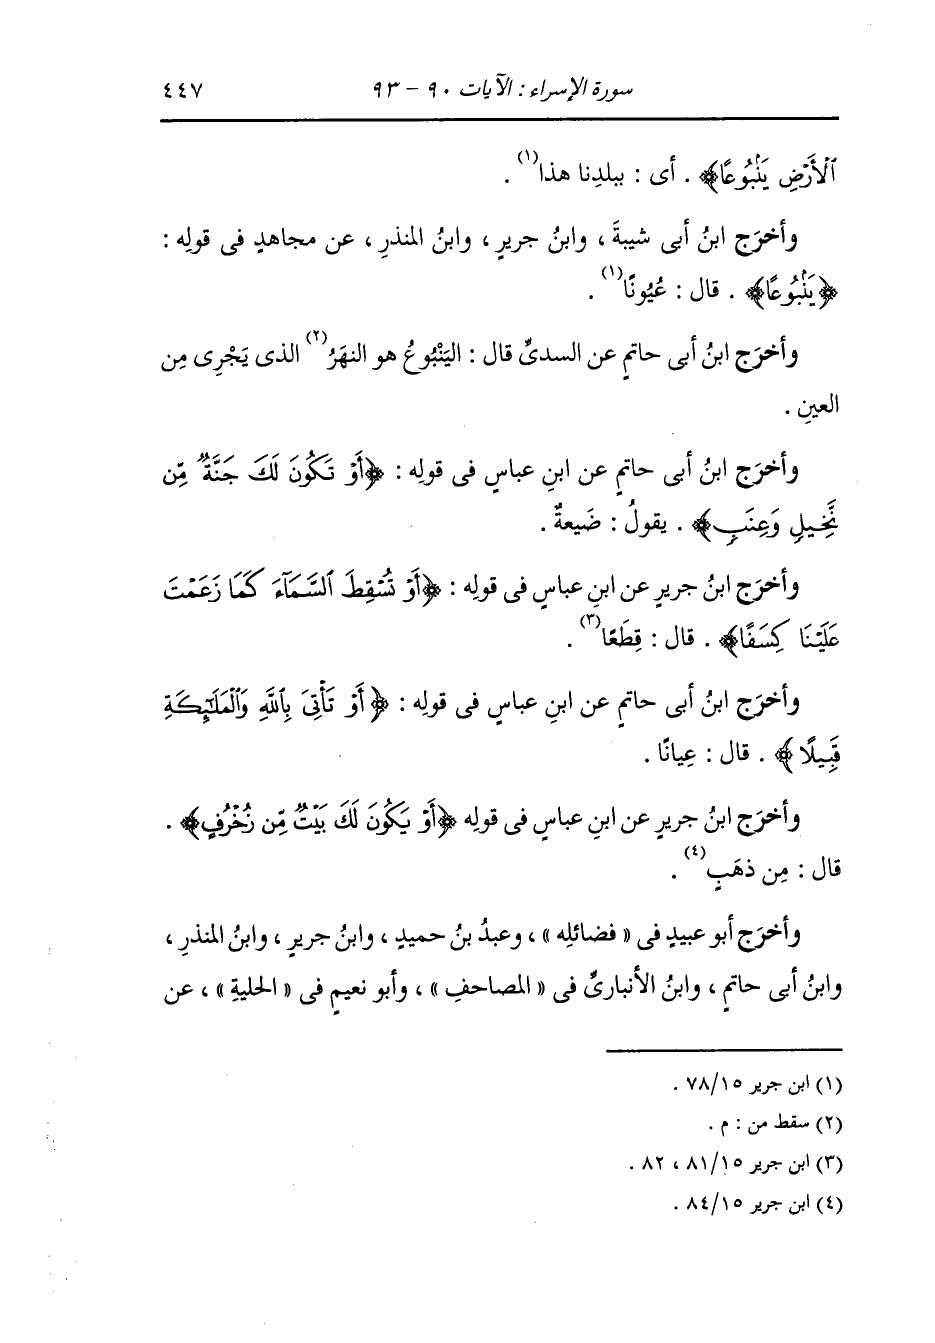 سورة الإسراء : الآيات ٩٠ - ٩٣ ٤٤٧
ٱلْأَرْضِ يَنۢبُوعًا﴾ . أى : ببلدِنا هذا(١) .
وأخرَج ابنُ أبى شيبةَ ، وابنُ جريرٍ ، وابنُ المنذرِ ، عن مجاهدٍ فى قولِه :
﴿يَنۢبُوعًا﴾ . قال : عُيُونًا(١) .
وأخرَج ابنُ أبى حاتمٍ عن السدىِّ قال : اليَنْبُوعُ هو النهَرُ(٢) الذى يَجْرِى مِن
العينِ .
وأخرَج ابنُ أبى حاتمٍ عن ابنِ عباسٍ فى قولِه : ﴿أَوْ تَكُونَ لَكَ جَنَّةٌ مِّن
نَّخِيلٍ وَعِنَبٍ﴾ . يقولُ : ضَيعةٌ .
وأخرَج ابنُ جريرٍ عن ابنِ عباسٍ فى قولِه : ﴿أَوْ تُسْقِطَ ٱلسَّمَآءَ كَمَا زَعَمْتَ
عَلَيْنَا كِسَفًا﴾ . قال : قِطَعًا(٣) .
وأخرَج ابنُ أبى حاتمٍ عن ابنِ عباسٍ فى قولِه : ﴿أَوْ تَأْتِىَ بِٱللَّهِ وَٱلْمَلَٰٓئِكَةِ
قَبِيلًا﴾ . قال : عِيانًا .
وأخرَج ابنُ جريرٍ عن ابنِ عباسٍ فى قولِه ﴿أَوْ يَكُونَ لَكَ بَيْتٌ مِّن زُخْرُفٍ﴾ .
قال : مِن ذهَبٍ(٤) .
وأخرَج أبو عبيدٍ فى « فضائلِه » ، وعبدُ بنُ حميدٍ ، وابنُ جريرٍ ، وابنُ المنذرِ ،
وابنُ أبى حاتمٍ ، وابنُ الأنبارىِّ فى « المصاحفِ » ، وأبو نعيمٍ فى « الحليةِ » ، عن
(١) ابن جرير ٧٨/١٥ .
(٢) سقط من : م .
(٣) ابن جرير ٨١/١٥ ، ٨٢ .
(٤) ابن جرير ٨٤/١٥ .